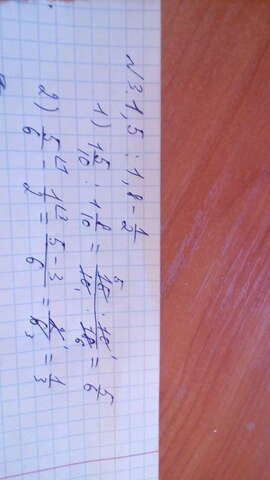 N3. 1,5 : 1,8 - 1/2
1) 1 5/10 : 1 8/10 = 15 · 10 / 10 · 18 = 5/6
2) 5/6 - 1/2 = 5-3 / 6 = 2/6 = 1/3